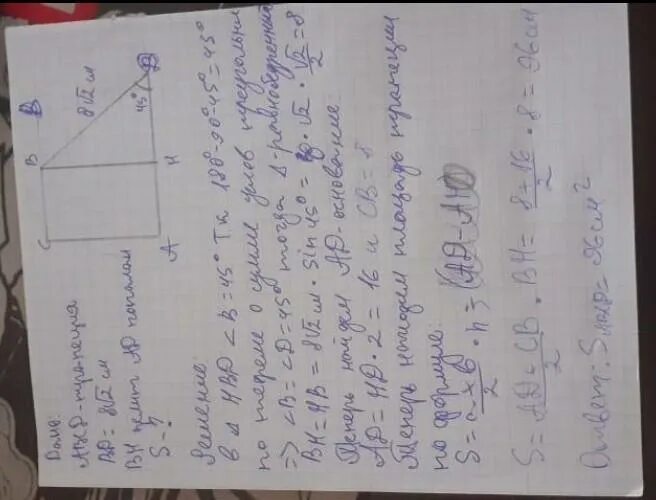 Дано:
АВСD-трапеция
ВD = 8√2 см
ВН делит АD пополам
S - ?
С
В
В
8√2 см
45°
D
А
Н
Решение
в Δ НВD ∠В = 45° т.к 180°-90°-45°=45°
по теореме о сумме углов треугольни
=> ∠В = ∠D = 45° тогда Δ-равнобедренный
ВН = НВ = 8√2 см · sin 45° = 8 · √2 · √2/2 = 8
Теперь найдем АD-основание
АD = НD · 2 = 16 и СВ = 8
Теперь находим площадь трапеции
по формуле:
S = а + b / 2 · h = (АD - А
S = АD + СВ / 2 · ВН = 8 + 16 / 2 · 8 = 96 см
Ответ: S = 96 см²